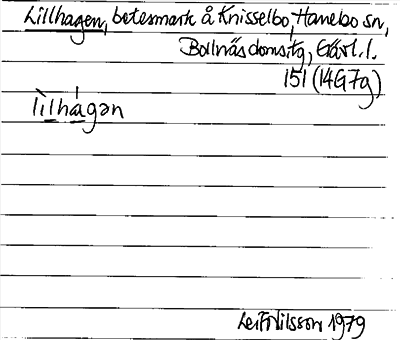 Lillhagen, betesmark å Knisselbo, Hanebo sn,
Bollnäs doms.tg, Gävl. l.
151 (14G7g)
lìlhágən
Leif Nilsson 1979